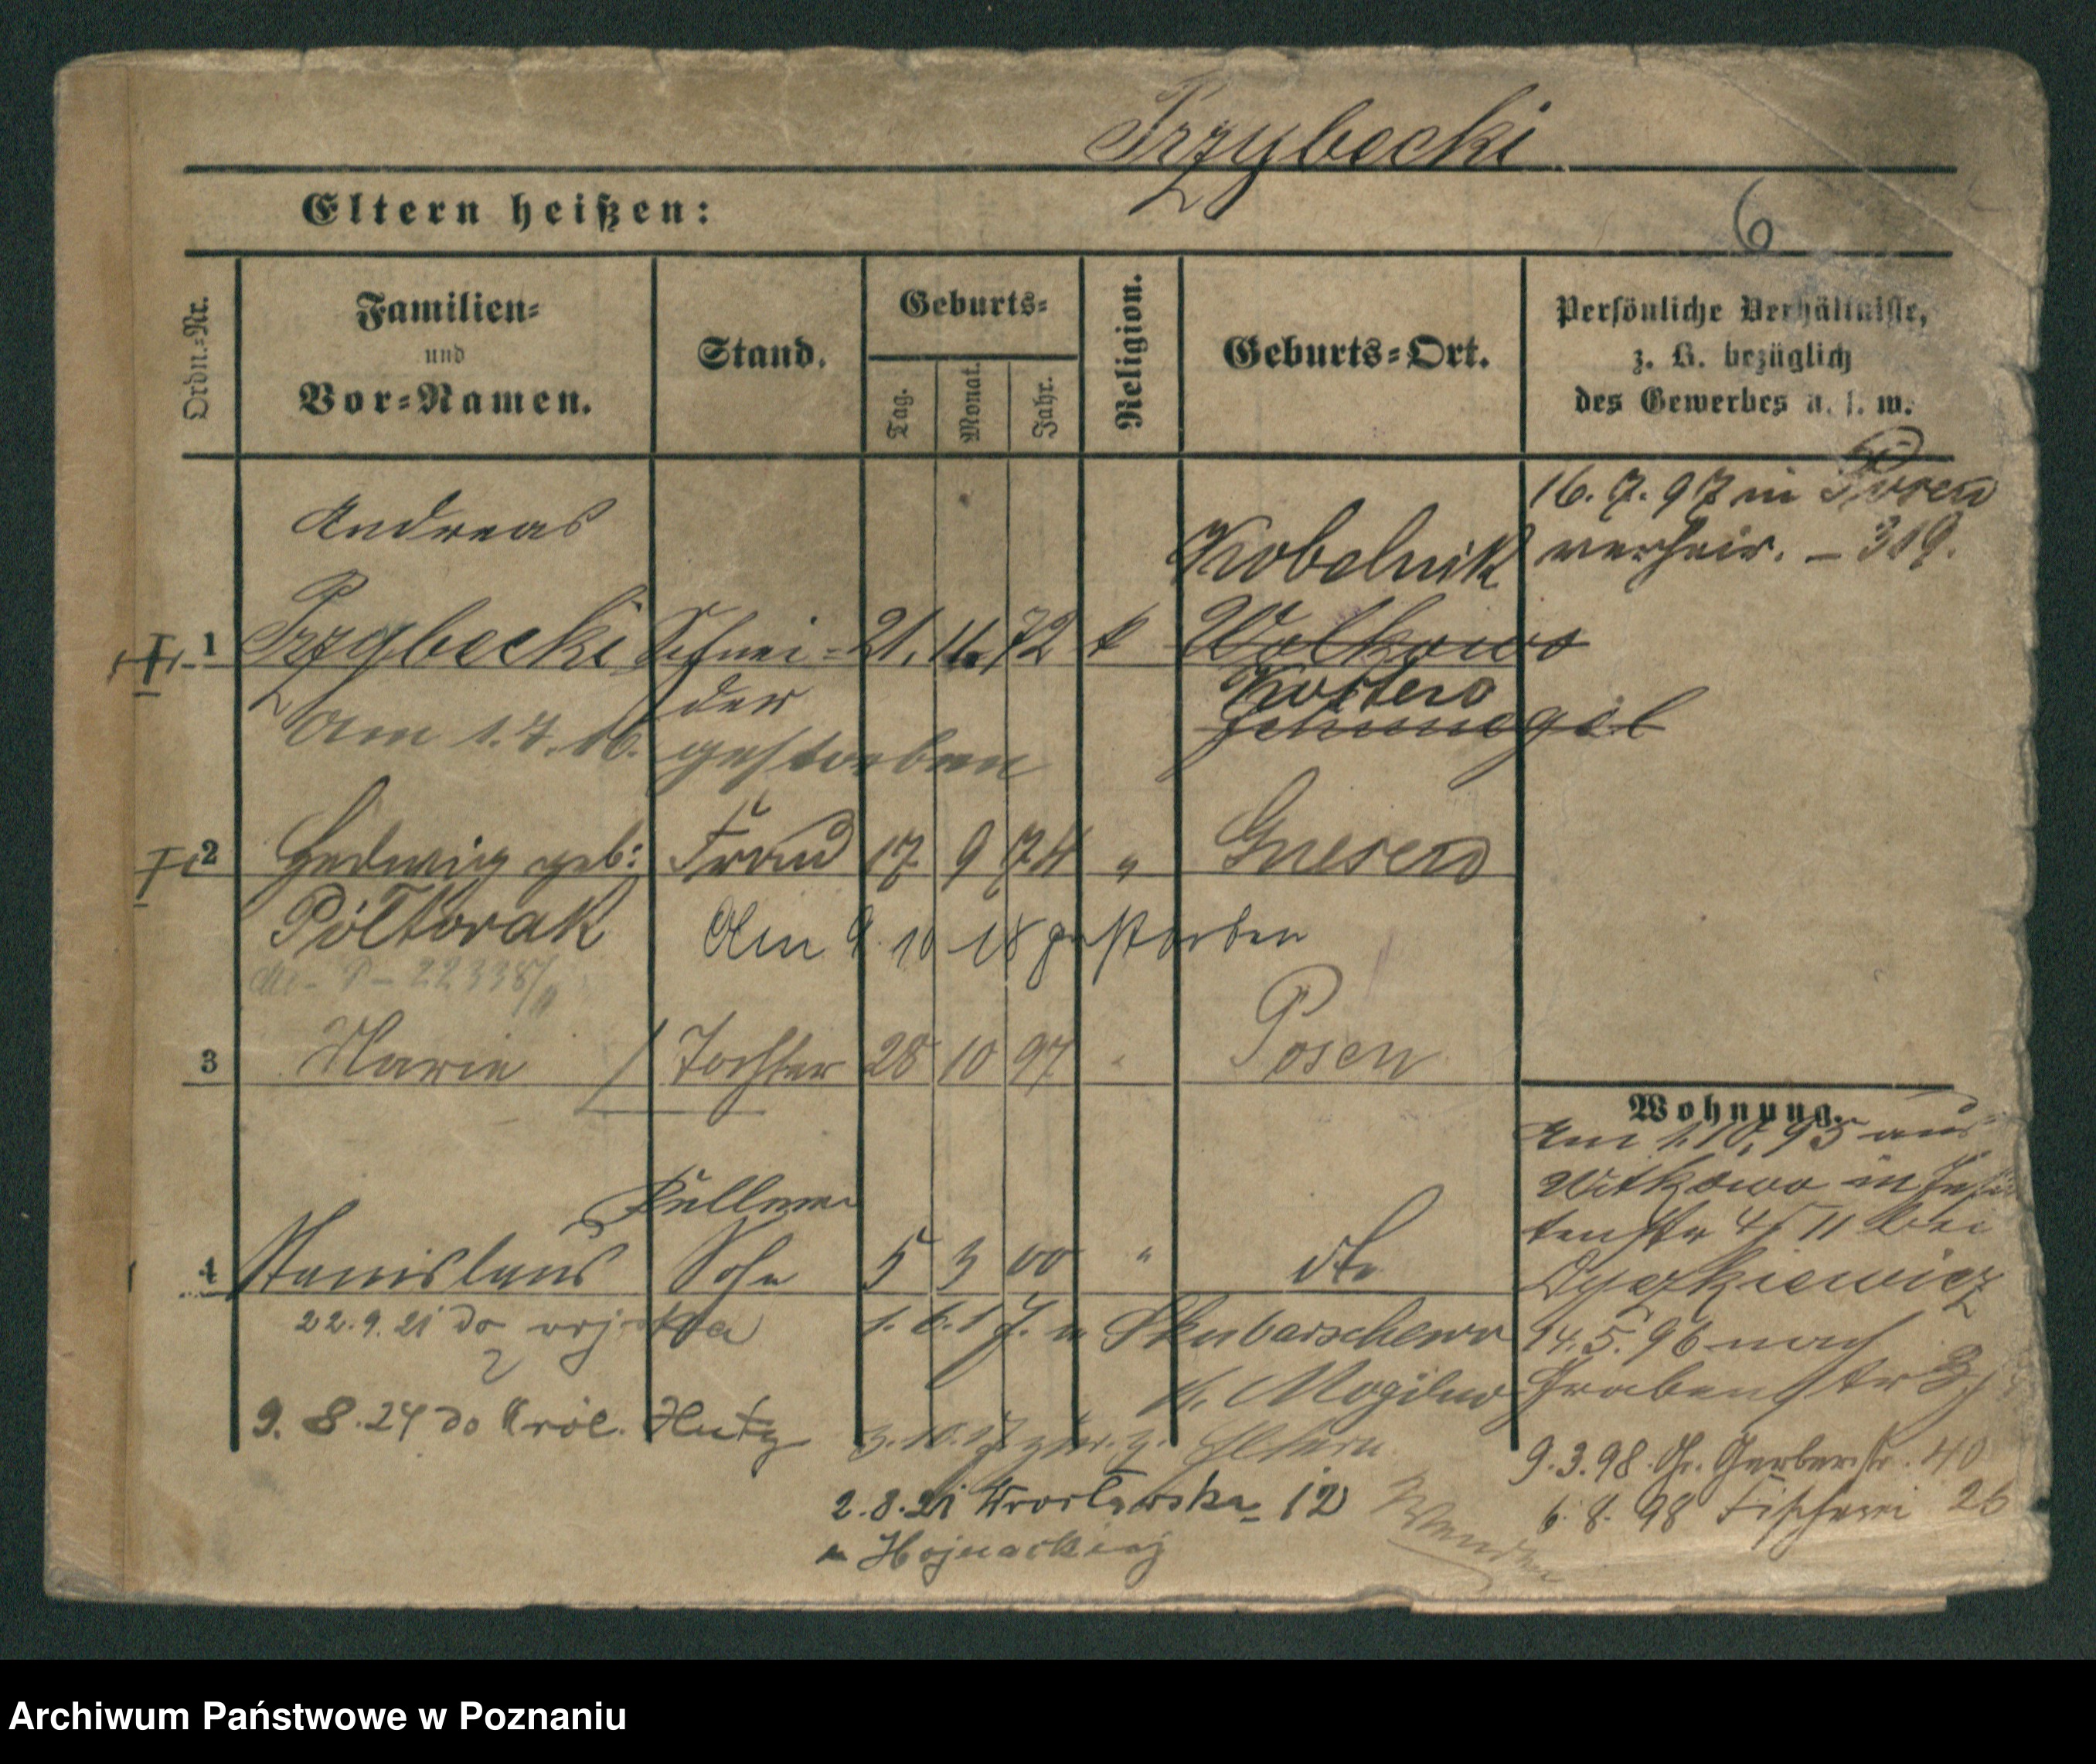 Przybecki
Eltern heißen:
6
Ordn.-Nr.
Familien-
und
Vor-Namen.
Stand.
Geburts-
Tag.
Monat.
Jahr.
Religion.
Geburts-Ort.
Persönliche Verhältnisse,
z. B. bezüglich
des Gewerbes u. s. w.
16. 7. 97 in Posen
verheir. – 319.
Andreas
Kobelnik
1 Przybecki Schnei- 21. 11. 72 k Wolkowo
der
Kosten
Am 1. 7. 16. gestorben
2 Hedwig geb: Frau 17 9 74 " Gnesen
Półtorak
Am 9. 10 18 gestorben
22338/
3 Marie Tochter 28 10 97 " Posen
Wohnung.
Am 1. 10. 95 aus
Witkowo in Jesui
tenstr 4/5 II bei
Dyszkiewicz
14. 5. 96 nach
Grabenstr 3
9. 3. 98. Gr. Gerberstr. 40
6. 8. 98 Fischerei 26
Kellner
4 Stanislaus Sohn 5 3 00 " dto
22. 9. 21 do wojska
1. 6. 17. n Skubarschewo
Kr. Mogilno
9. 8. 24 do Król. Huty
3. 10. 17 zur. z. Eltern
2. 8. 21 Wrocławska 12
Hojnackiej
Wenden
Archiwum Państwowe w Poznaniu